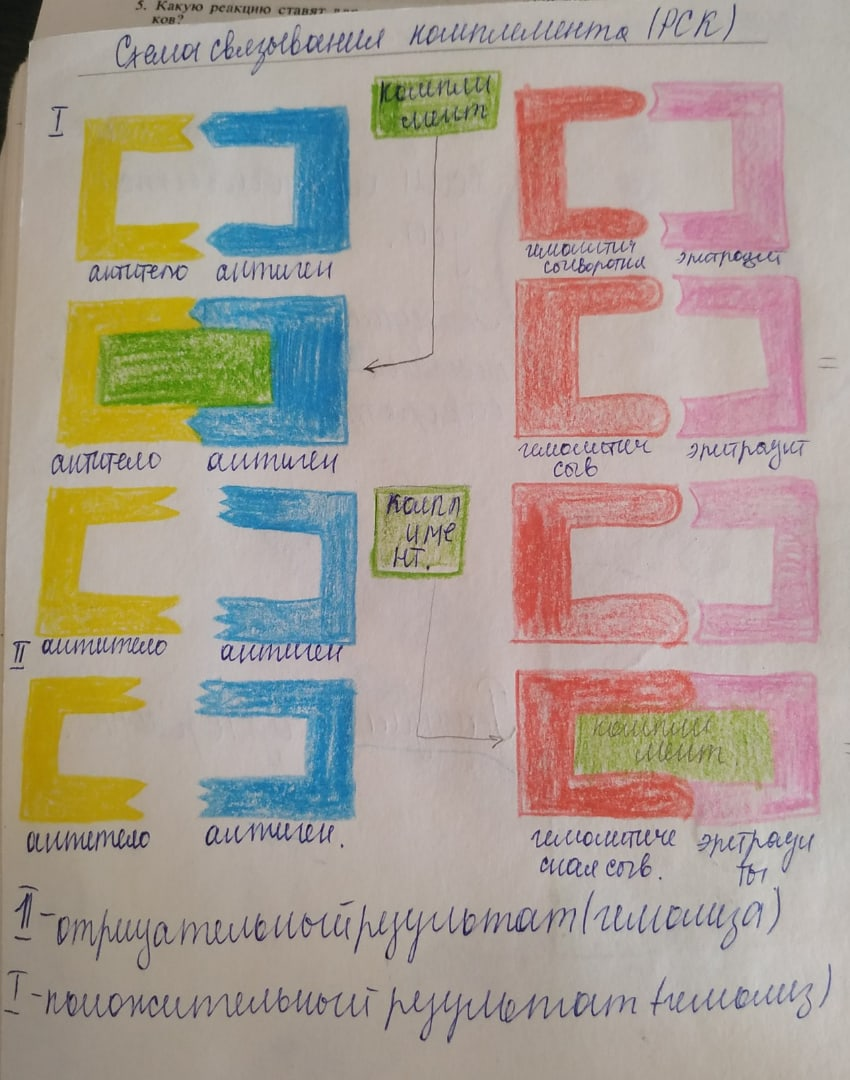 5. Какую реакцию ставят для
ков?
Схема связывания комплемента (РСК)
I
компли
мент
антитело антиген
гемолитич
сыворотка
эритроцит
антитело антиген
гемолитич
сыв
эритроцит
=
компл
име
нт.
II антитело антиген
компли
мент
антитело антиген.
гемолитиче
ская сыв.
эритроци
ты
II - отрицательный результат (гемолиза)
I - положительный результат (гемолиз)